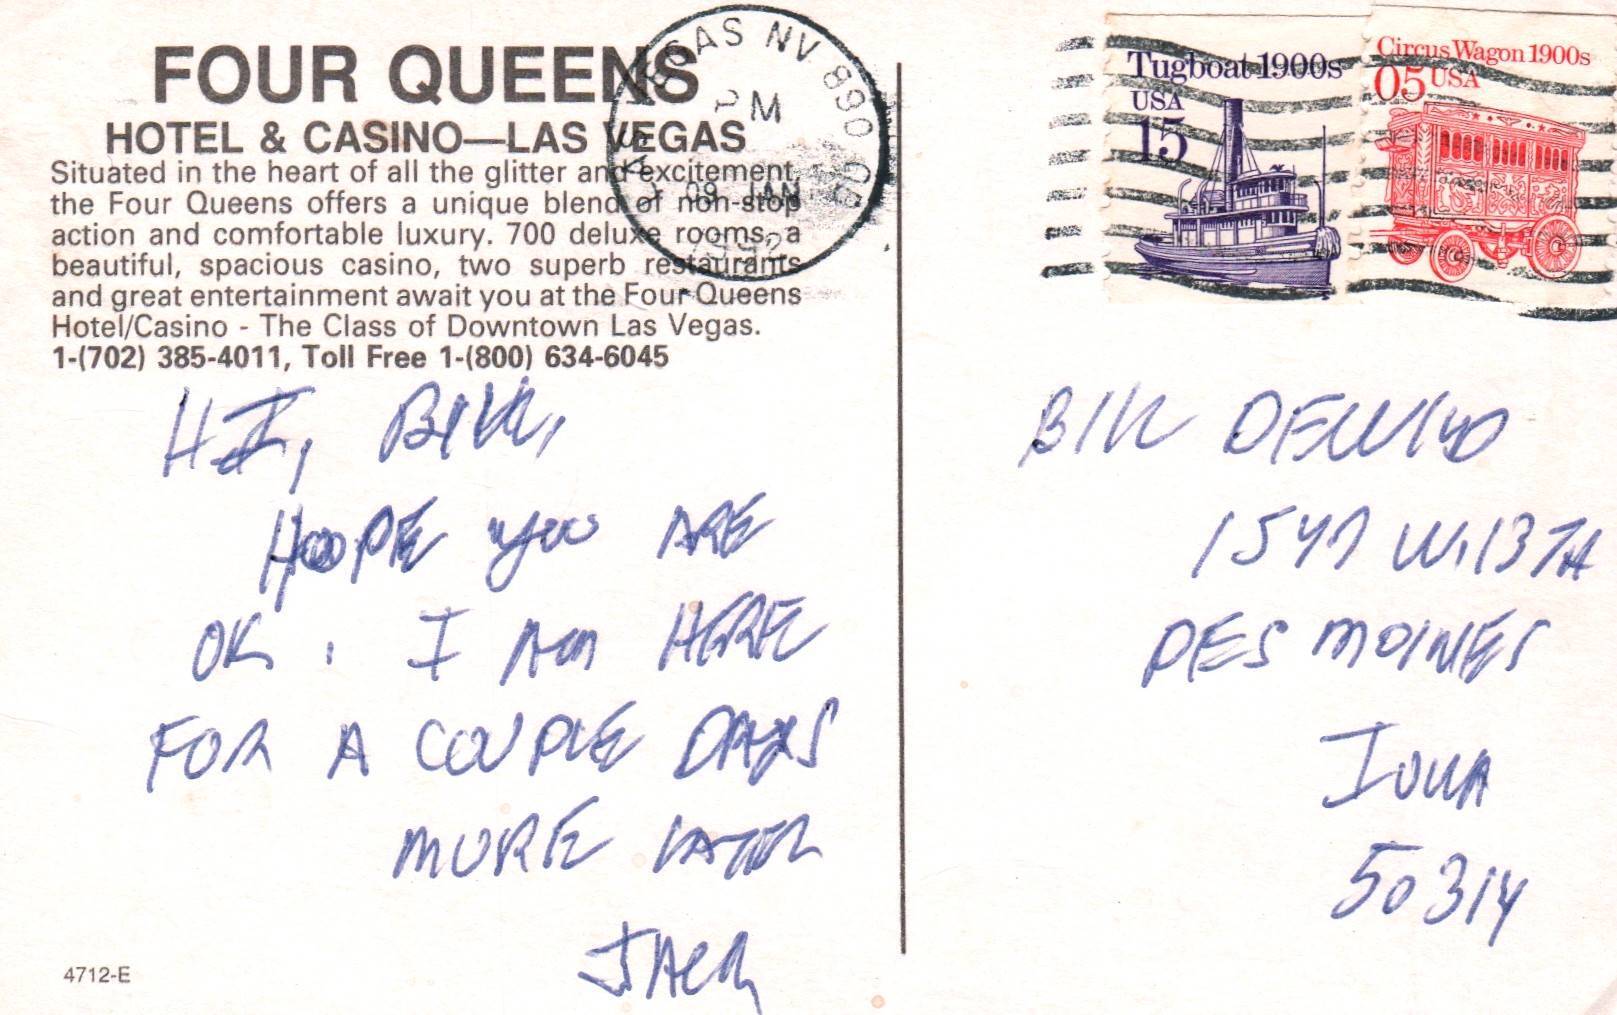 FOUR QUEENS
HOTEL & CASINO—LAS VEGAS
Situated in the heart of all the glitter and excitement,
the Four Queens offers a unique blend of non-stop
action and comfortable luxury. 700 deluxe rooms, a
beautiful, spacious casino, two superb restaurants
and great entertainment await you at the Four Queens
Hotel/Casino - The Class of Downtown Las Vegas.
1-(702) 385-4011, Toll Free 1-(800) 634-6045
HI, BILL,
HOPE YOU ARE
OK. I AM HERE
FOR A COUPLE DAYS
MORE LATER
JACK
4712-E
LAS VEGAS NV 890
PM
09 JAN
1992
Tugboat 1900s
USA
15
Circus Wagon 1900s
05 USA
BILL
1547 W. 13 TH
DES MOINES
IOWA
50314